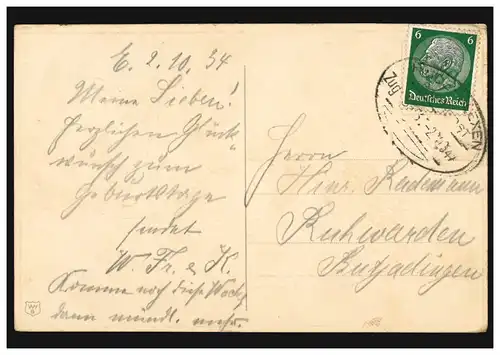 E. 2.10.34
Meine Lieben!
Herzlichen Glück
wunsch zum
Geburtstage
sendet
W. Fr. & K.
Komme noch diese Woche
dann mündl. mehr.
6 6
Deutsches Reich
Zug
EXEN
Herrn
Hinr. Rademann
Ruhwarden
Butjadingen